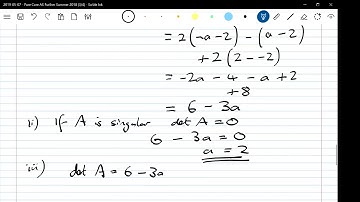 2019 05 07 - Pure Core AS Further Summer 2018 (3/4) - Scribble Ink
= 2(-a-2) - (a-2)
+ 2(2--2)
= -2a - 4 - a + 2
+8
= 6 - 3a
ii) If A is singular det A = 0
6 - 3a = 0
a = 2
iii) det A = 6 - 3a